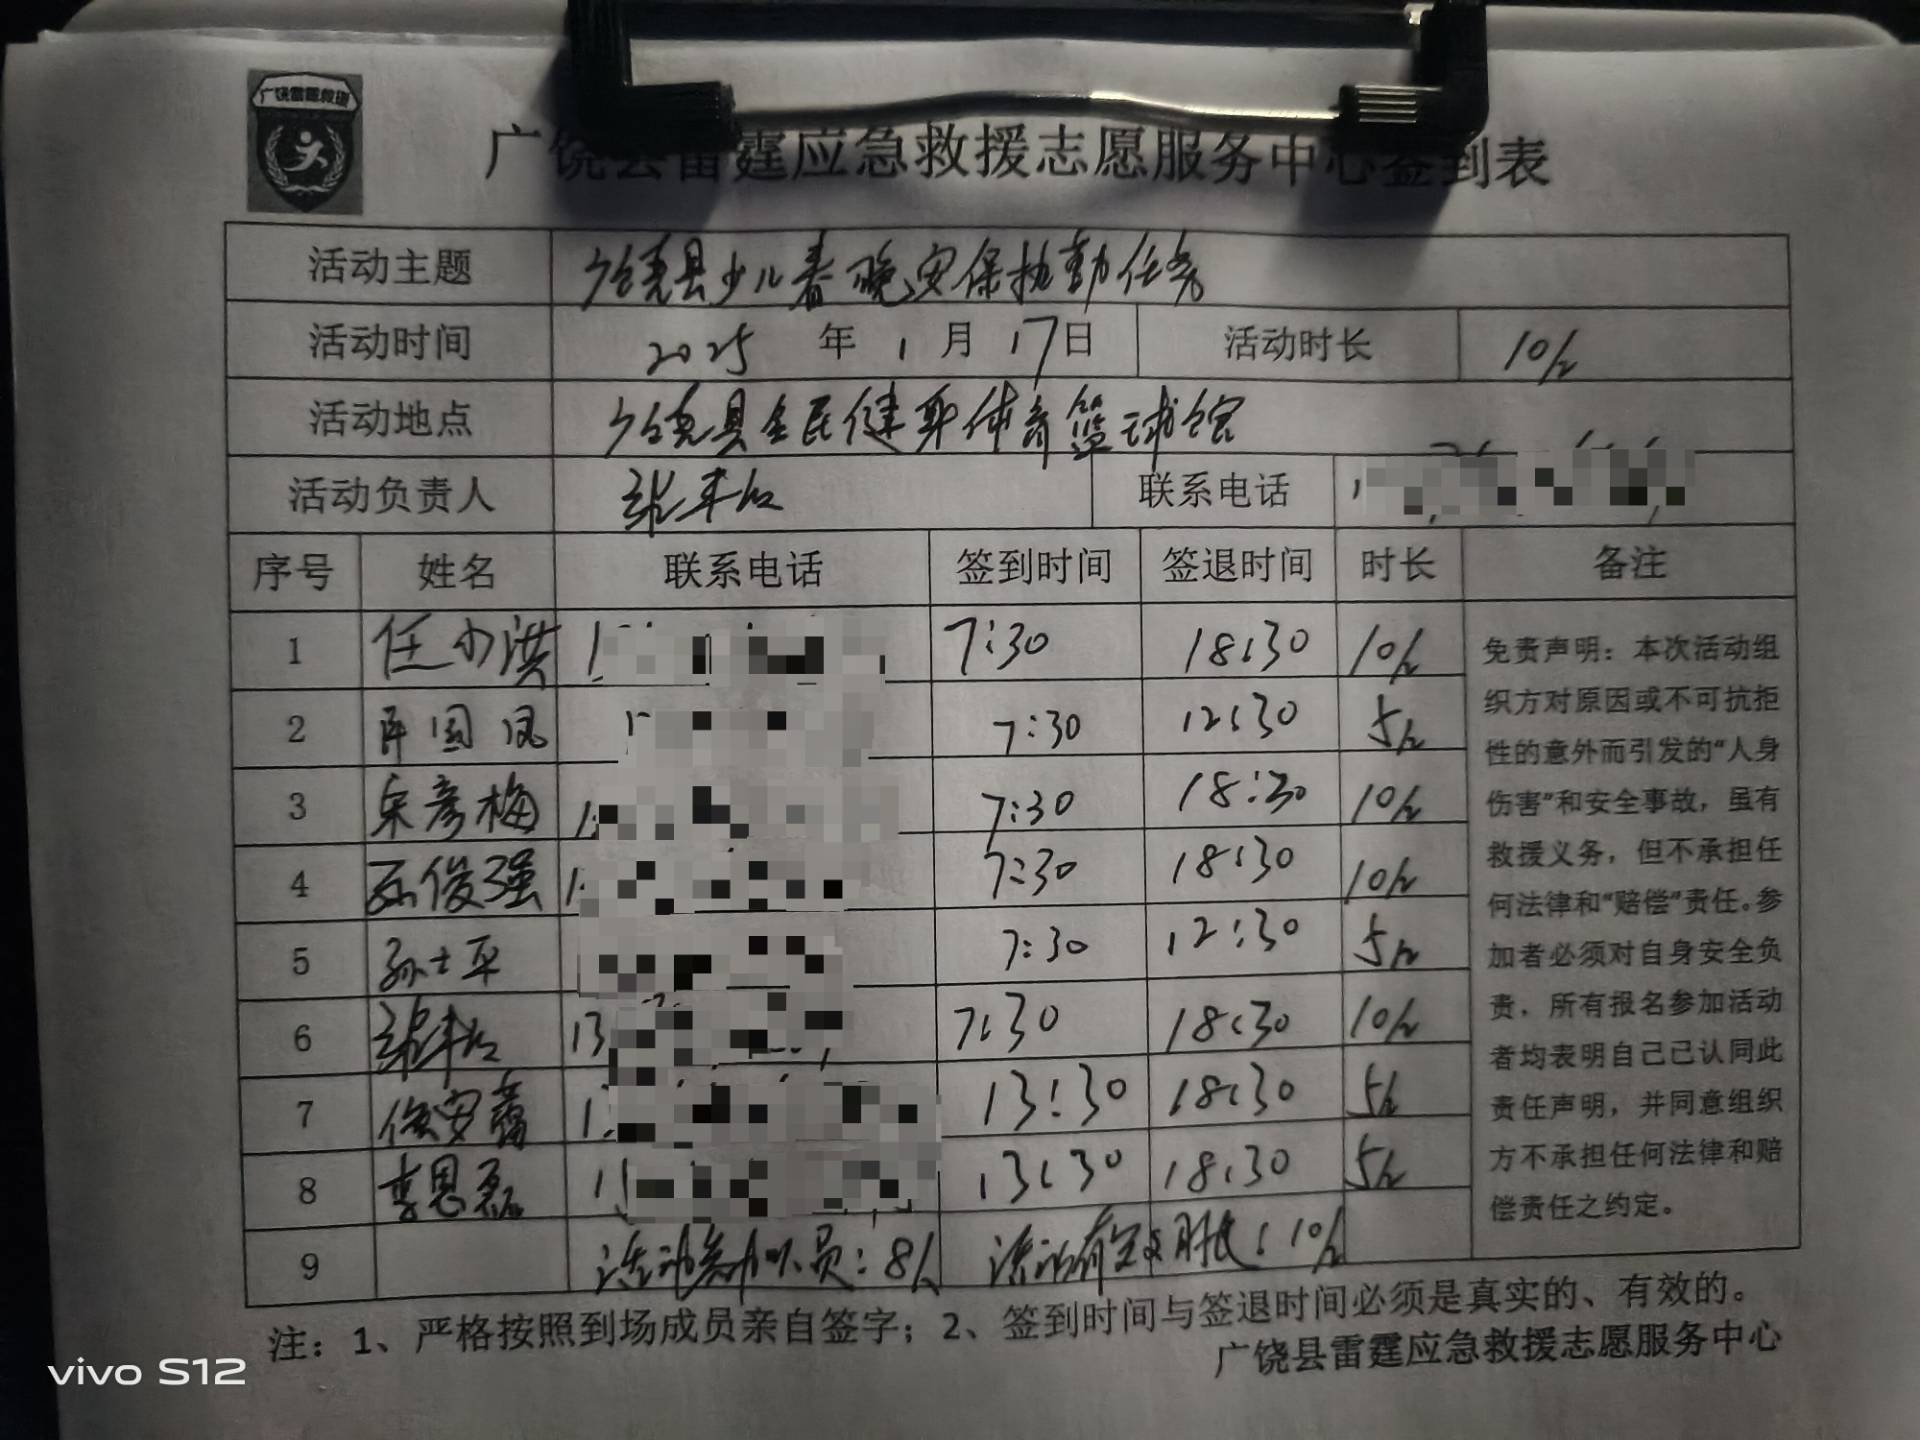 广饶雷霆救援
广饶县雷霆应急救援志愿服务中心签到表
活动主题 广饶县少儿春晚安保执勤任务
活动时间 2025 年 1 月 17日 活动时长 10h
活动地点 广饶县全民健身体育篮球馆
活动负责人 联系电话 1
序号 姓名 联系电话 签到时间 签退时间 时长 备注
1 任少洪 1 7:30 18:30 10h
2 国凤 1 7:30 12:30 5h
3 宋彦梅 1 7:30 18:30 10h
4 孙俊强 1 7:30 18:30 10h
5 孙士平 7:30 12:30 5h
6 13 7:30 18:30 10h
7 1 13:30 18:30 5h
8 李恩磊 1 13:30 18:30 5h
9 活动参加队员：8人 活动有效时长：10h
免责声明：本次活动组
织方对原因或不可抗拒
性的意外而引发的“人身
伤害”和安全事故，虽有
救援义务，但不承担任
何法律和“赔偿”责任。参
加者必须对自身安全负
责，所有报名参加活动
者均表明自己已认同此
责任声明，并同意组织
方不承担任何法律和赔
偿责任之约定。
注：1、严格按照到场成员亲自签字；2、签到时间与签退时间必须是真实的、有效的。
广饶县雷霆应急救援志愿服务中心
vivo S12